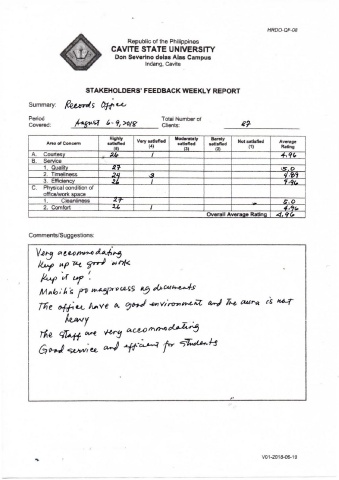 HRDO-QF-08
Republic of the Philippines
CAVITE STATE UNIVERSITY
Don Severino delas Alas Campus
Indang, Cavite
STAKEHOLDERS' FEEDBACK WEEKLY REPORT
Summary: Records Office
Period Covered: August 6-9, 2018 Total Number of Clients: 27
Area of Concern Highly satisfied (5) Very satisfied (4) Moderately satisfied (3) Barely satisfied (2) Not satisfied (1) Average Rating
A. Courtesy 26 1 4.96
B. Service
1. Quality 27 5.0
2. Timeliness 24 3 4.89
3. Efficiency 26 1 4.96
C. Physical condition of office/work space
1. Cleanliness 27 5.0
2. Comfort 26 1 4.96
Overall Average Rating 4.96
Comments/Suggestions:
Very accommodating
Keep up the good work
Keep it up!
Mabilis po magprocess ng documents
The office have a good environment and the aura is not
heavy
The staff are very accommodating
Good service and efficient for students
V01-2018-06-19